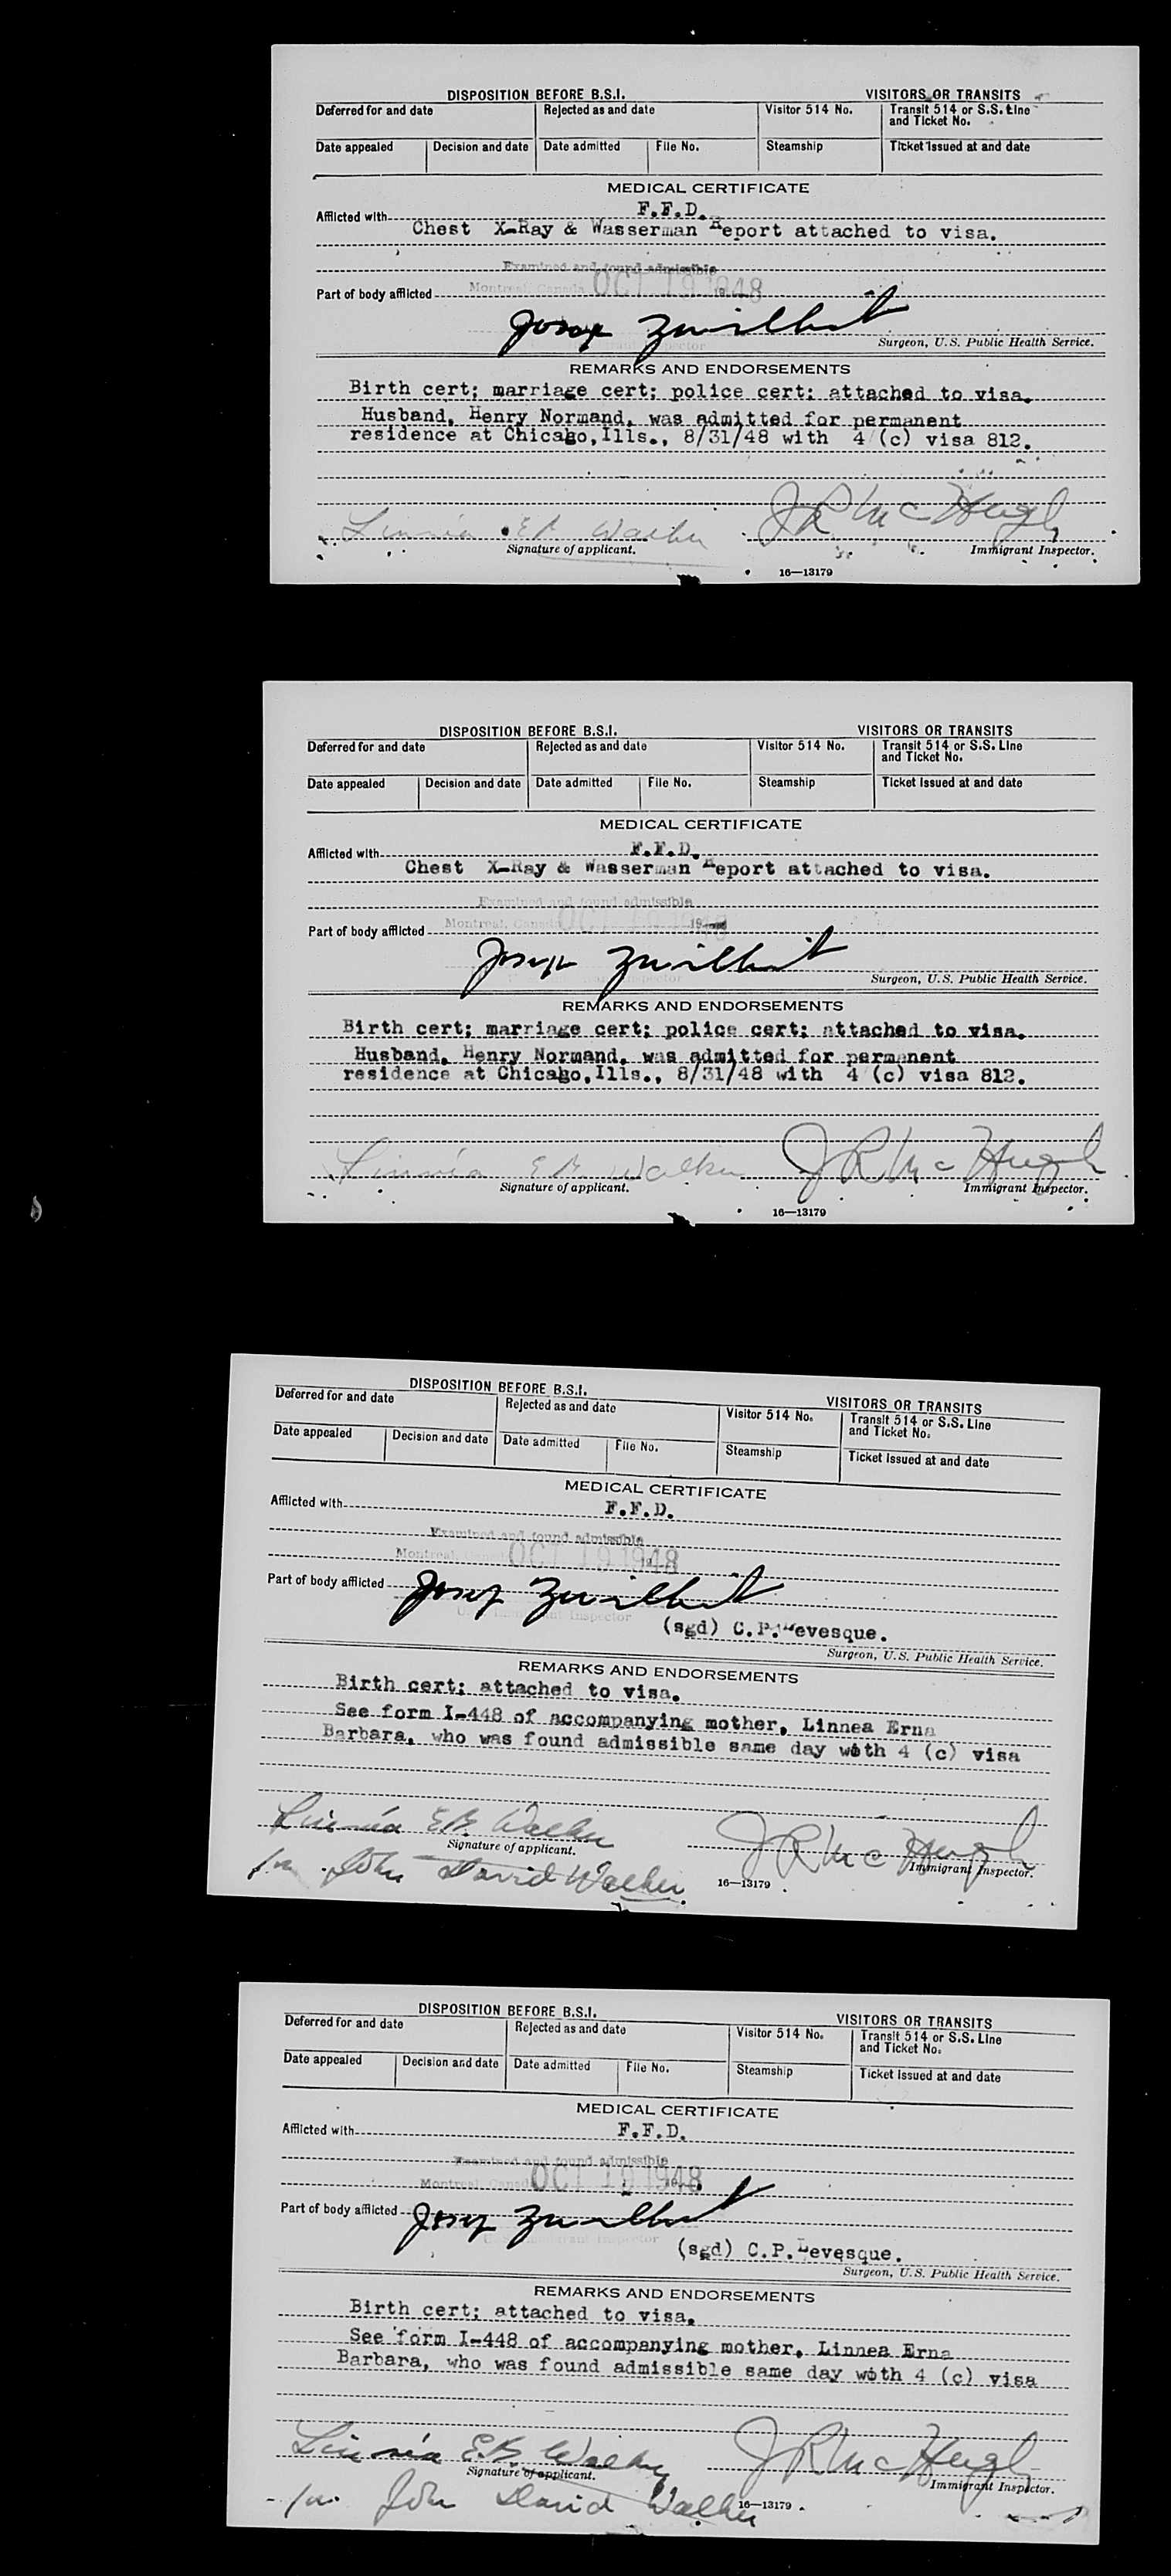 DISPOSITION BEFORE B.S.I. VISITORS OR TRANSITS
Deferred for and date Rejected as and date Visitor 514 No. Transit 514 or S.S. Line
and Ticket No.
Date appealed Decision and date Date admitted File No. Steamship Ticket Issued at and date
MEDICAL CERTIFICATE
Afflicted with F.F.D.
Chest X-Ray & Wasserman Report attached to visa.
Examined and found admissible
Part of body afflicted Montreal, Canada OCT 19 1948
Surgeon, U.S. Public Health Service.
REMARKS AND ENDORSEMENTS
Birth cert; marriage cert; police cert; attached to visa.
Husband, Henry Normand, was admitted for permanent
residence at Chicago,Ills., 8/31/48 with 4 (c) visa 812.
Linnéa E B Walker J R McHugh
Signature of applicant. Immigrant Inspector.
16—13179
DISPOSITION BEFORE B.S.I. VISITORS OR TRANSITS
Deferred for and date Rejected as and date Visitor 514 No. Transit 514 or S.S. Line
and Ticket No.
Date appealed Decision and date Date admitted File No. Steamship Ticket Issued at and date
MEDICAL CERTIFICATE
Afflicted with F.F.D.
Chest X-Ray & Wasserman Report attached to visa.
Examined and found admissible
Part of body afflicted Montreal, Canada OCT 19 1948
Surgeon, U.S. Public Health Service.
REMARKS AND ENDORSEMENTS
Birth cert; marriage cert; police cert; attached to visa.
Husband, Henry Normand, was admitted for permanent
residence at Chicago,Ills., 8/31/48 with 4 (c) visa 812.
Linnéa E B Walker J R McHugh
Signature of applicant. Immigrant Inspector.
16—13179
DISPOSITION BEFORE B.S.I. VISITORS OR TRANSITS
Deferred for and date Rejected as and date Visitor 514 No. Transit 514 or S.S. Line
and Ticket No.
Date appealed Decision and date Date admitted File No. Steamship Ticket Issued at and date
MEDICAL CERTIFICATE
Afflicted with F.F.D.
Examined and found admissible
Montreal, Canada OCT 19 1948
Part of body afflicted
(sgd) C.P. Levesque.
Surgeon, U.S. Public Health Service.
REMARKS AND ENDORSEMENTS
Birth cert; attached to visa.
See form I-448 of accompanying mother, Linnea Erna
Barbara, who was found admissible same day woth 4 (c) visa
Linnéa E.B. Walker J R McHugh
Signature of applicant. Immigrant Inspector.
John David Walker 16—13179
DISPOSITION BEFORE B.S.I. VISITORS OR TRANSITS
Deferred for and date Rejected as and date Visitor 514 No. Transit 514 or S.S. Line
and Ticket No.
Date appealed Decision and date Date admitted File No. Steamship Ticket Issued at and date
MEDICAL CERTIFICATE
Afflicted with F.F.D.
Examined and found admissible
Montreal, Canada OCT 19 1948
Part of body afflicted
(sgd) C.P. Levesque.
Surgeon, U.S. Public Health Service.
REMARKS AND ENDORSEMENTS
Birth cert; attached to visa.
See form I-448 of accompanying mother, Linnea Erna
Barbara, who was found admissible same day woth 4 (c) visa
Linnéa E.B. Walker J R McHugh
Signature of applicant. Immigrant Inspector.
John David Walker 16—13179